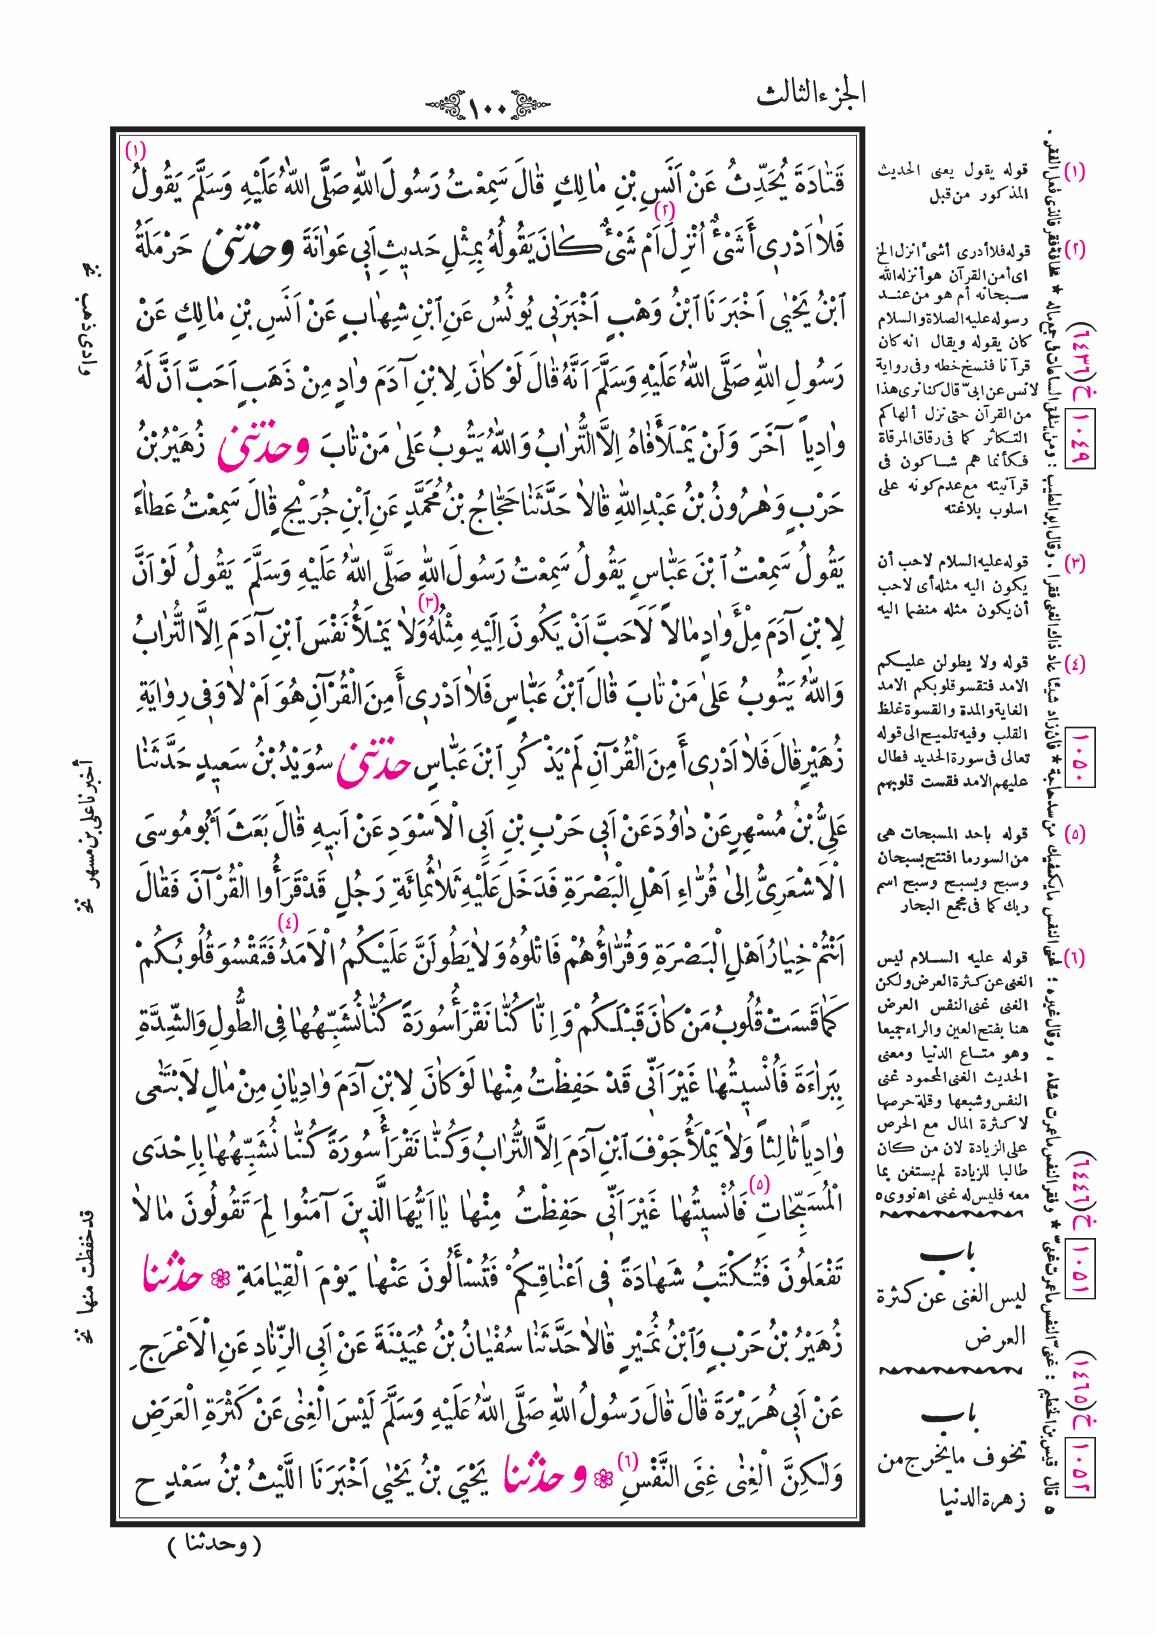 الجزء الثالث
١٠٠
(١)
قَتَادَةَ يُحَدِّثُ عَنْ أَنَسِ بْنِ مَالِكٍ قَالَ سَمِعْتُ رَسُولَ اللهِ صَلَّى اللهُ عَلَيْهِ وَسَلَّمَ يَقُولُ
(٢)
فَلَا اَدْرِى أَشَىْءٌ اُنْزِلَ اَمْ شَىْءٌ كَانَ يَقُولُهُ بِمِثْلِ حَديثِ اَبِى عَوَانَةَ وحَدَّثَنِى حَرْمَلَةُ
ابْنُ يَحْيٰى اَخْبَرَنَا ابْنُ وَهْبٍ اَخْبَرَنِى يُونُسُ عَنِ ابْنِ شِهَابٍ عَنْ اَنَسِ بْنِ مَالِكٍ عَنْ
رَسُولِ اللهِ صَلَّى اللهُ عَلَيْهِ وَسَلَّمَ اَنَّهُ قَالَ لَوْ كَانَ لِابْنِ آدَمَ وَادٍ مِنْ ذَهَبٍ اَحَبَّ اَنَّ لَهُ
وَادِياً آخَرَ وَلَنْ يَمْلَأَ فَاهُ اِلَّا التُّرَابُ وَاللهُ يَتُوبُ عَلىٰ مَنْ تَابَ وحَدَّثَنِى زُهَيْرُ بْنُ
حَرْبٍ وَهٰرُونُ بْنُ عَبْدِ اللهِ قَالَا حَدَّثَنَا حَجَّاجُ بْنُ مُحَمَّدٍ عَنِ ابْنِ جُرَيْجٍ قَالَ سَمِعْتُ عَطَاءً
يَقُولُ سَمِعْتُ ابْنَ عَبَّاسٍ يَقُولُ سَمِعْتُ رَسُولَ اللهِ صَلَّى اللهُ عَلَيْهِ وَسَلَّمَ يَقُولُ لَوْ اَنَّ
(٣)
لِابْنِ آدَمَ مِلْءَ وَادٍ مَالاً لَاَحَبَّ اَنْ يَكُونَ اِلَيْهِ مِثْلُهُ وَلَا يَمْلَأُ نَفْسَ ابْنِ آدَمَ اِلَّا التُّرَابُ
وَاللهُ يَتُوبُ عَلىٰ مَنْ تَابَ قَالَ ابْنُ عَبَّاسٍ فَلَا اَدْرِى أَمِنَ الْقُرْآنِ هُوَ اَمْ لَا وَفِى رِوَايَةِ
زُهَيْرٍ قَالَ فَلَا اَدْرِى أَمِنَ الْقُرْآنِ لَمْ يَذْكُرِ ابْنَ عَبَّاسٍ حَدَّثَنِى سُوَيْدُ بْنُ سَعِيدٍ حَدَّثَنَا
عَلِىُّ بْنُ مُسْهِرٍ عَنْ دَاوُدَ عَنْ اَبِى حَرْبِ بْنِ اَبِى الْاَسْوَدِ عَنْ اَبِيهِ قَالَ بَعَثَ اَبُو مُوسَى
الْاَشْعَرِىُّ اِلىٰ قُرَّاءِ اَهْلِ الْبَصْرَةِ فَدَخَلَ عَلَيْهِ ثَلَاثُمِائَةِ رَجُلٍ قَدْ قَرَأُوا الْقُرْآنَ فَقَالَ
(٤)
اَنْتُمْ خِيَارُ اَهْلِ الْبَصْرَةِ وَقُرَّاؤُهُمْ فَاتْلُوهُ وَلَا يَطُولَنَّ عَلَيْكُمُ الْاَمَدُ فَتَقْسُوَ قُلُوبُكُمْ
كَمَا قَسَتْ قُلُوبُ مَنْ كَانَ قَبْلَكُمْ وَاِنَّا كُنَّا نَقْرَأُ سُورَةً كُنَّا نُشَبِّهُهَا فِى الطُّولِ وَالشِّدَّةِ
بِبَرَاءَةَ فَاُنْسِيتُهَا غَيْرَ اَنِّى قَدْ حَفِظْتُ مِنْهَا لَوْ كَانَ لِابْنِ آدَمَ وَادِيَانِ مِنْ مَالٍ لَابْتَغٰى
وَادِياً ثَالِثاً وَلَا يَمْلَأُ جَوْفَ ابْنِ آدَمَ اِلَّا التُّرَابُ وَكُنَّا نَقْرَأُ سُورَةً كُنَّا نُشَبِّهُهَا بِاِحْدَى
(٥)
الْمُسَبِّحَاتِ فَاُنْسِيتُهَا غَيْرَ اَنِّى حَفِظْتُ مِنْهَا يَا اَيُّهَا الَّذِينَ آمَنُوا لِمَ تَقُولُونَ مَا لَا
تَفْعَلُونَ فَتُكْتَبُ شَهَادَةً فِى اَعْنَاقِكُمْ فَتُسْأَلُونَ عَنْهَا يَوْمَ الْقِيَامَةِ ۞ حَدَّثَنَا
زُهَيْرُ بْنُ حَرْبٍ وَابْنُ نُمَيْرٍ قَالَا حَدَّثَنَا سُفْيَانُ بْنُ عُيَيْنَةَ عَنْ اَبِى الزِّنَادِ عَنِ الْاَعْرَجِ
عَنْ اَبِى هُرَيْرَةَ قَالَ قَالَ رَسُولُ اللهِ صَلَّى اللهُ عَلَيْهِ وَسَلَّمَ لَيْسَ الْغِنٰى عَنْ كَثْرَةِ الْعَرَضِ
وَلٰكِنَّ الْغِنٰى غِنَى النَّفْسِ (٦) ۞ وحَدَّثَنَا يَحْيَى بْنُ يَحْيٰى اَخْبَرَنَا اللَّيْثُ بْنُ سَعْدٍ ح
(وحدثنا)
(١) قوله يقول يعنى الحديث
المذكور من قبل
(٢) قوله فلا أدرى أشىء انزل الخ
اى أمن القرآن هو أنزله الله
سبحانه أم هو من عند
رسوله عليه الصلاة والسلام
كان يقوله ويقال انه كان
قرآنا فنسخ خطه وفى رواية
لانس عن ابىّ قال كنا نرى هذا
من القرآن حتى نزل ألهاكم
التكاثر كما فى رقاق المرقاة
فكأنما هم شاكون فى
قرآنيته مع عدم كونه على
اسلوب بلاغته
(٣) قوله عليه السلام لاحب أن
يكون اليه مثله أى لاحب
أن يكون مثله منضما اليه
(٤) قوله ولا يطولن عليكم
الامد فتقسو قلوبكم الامد
الغاية والمدة والقسوة غلظ
القلب وفيه تلميح الى قوله
تعالى فى سورة الحديد فطال
عليهم الامد فقست قلوبهم
(٥) قوله باحد المسبحات هى
من السور ما افتتح بسبحان
وسبح ويسبح وسبح اسم
ربك كما فى مجمع البحار
(٦) قوله عليه السلام ليس
الغنى عن كثرة العرض ولكن
الغنى غنى النفس العرض
هنا بفتح العين والراء جميعا
وهو متاع الدنيا ومعنى
الحديث الغنى المحمود غنى
النفس وشبعها وقلة حرصها
لا كثرة المال مع الحرص
على الزيادة لان من كان
طالبا للزيادة لم يستغن بما
معه فليس له غنى اه نووى ه
باب
ليس الغنى عن كثرة
العرض
باب
تخوف ما يخرج من
زهرة الدنيا
ه قال قيس بن الخطيم : غنىّ النفس ما عمرت غنىّ * وفقر النفس ما عمرت شقاء . وقال غيره : غنى النفس ما يكفيك من سد حاجة * فان زاد شيئا عاد ذاك الغنى فقرا . وقال ابو الطيب : ومن ينفق الساعات فى جمع ماله * مخافة فقر فالذى فعل الفقر .
خ (٦٤٣٦)
١٠٤٩
١٠٥٠
خ (٦٤٤٦)
١٠٥١
خ (١٤٦٥)
١٠٥٢
وادى ذهب نخ
أخبرنا على بن مسهر نخ
قد حفظت منها نخ